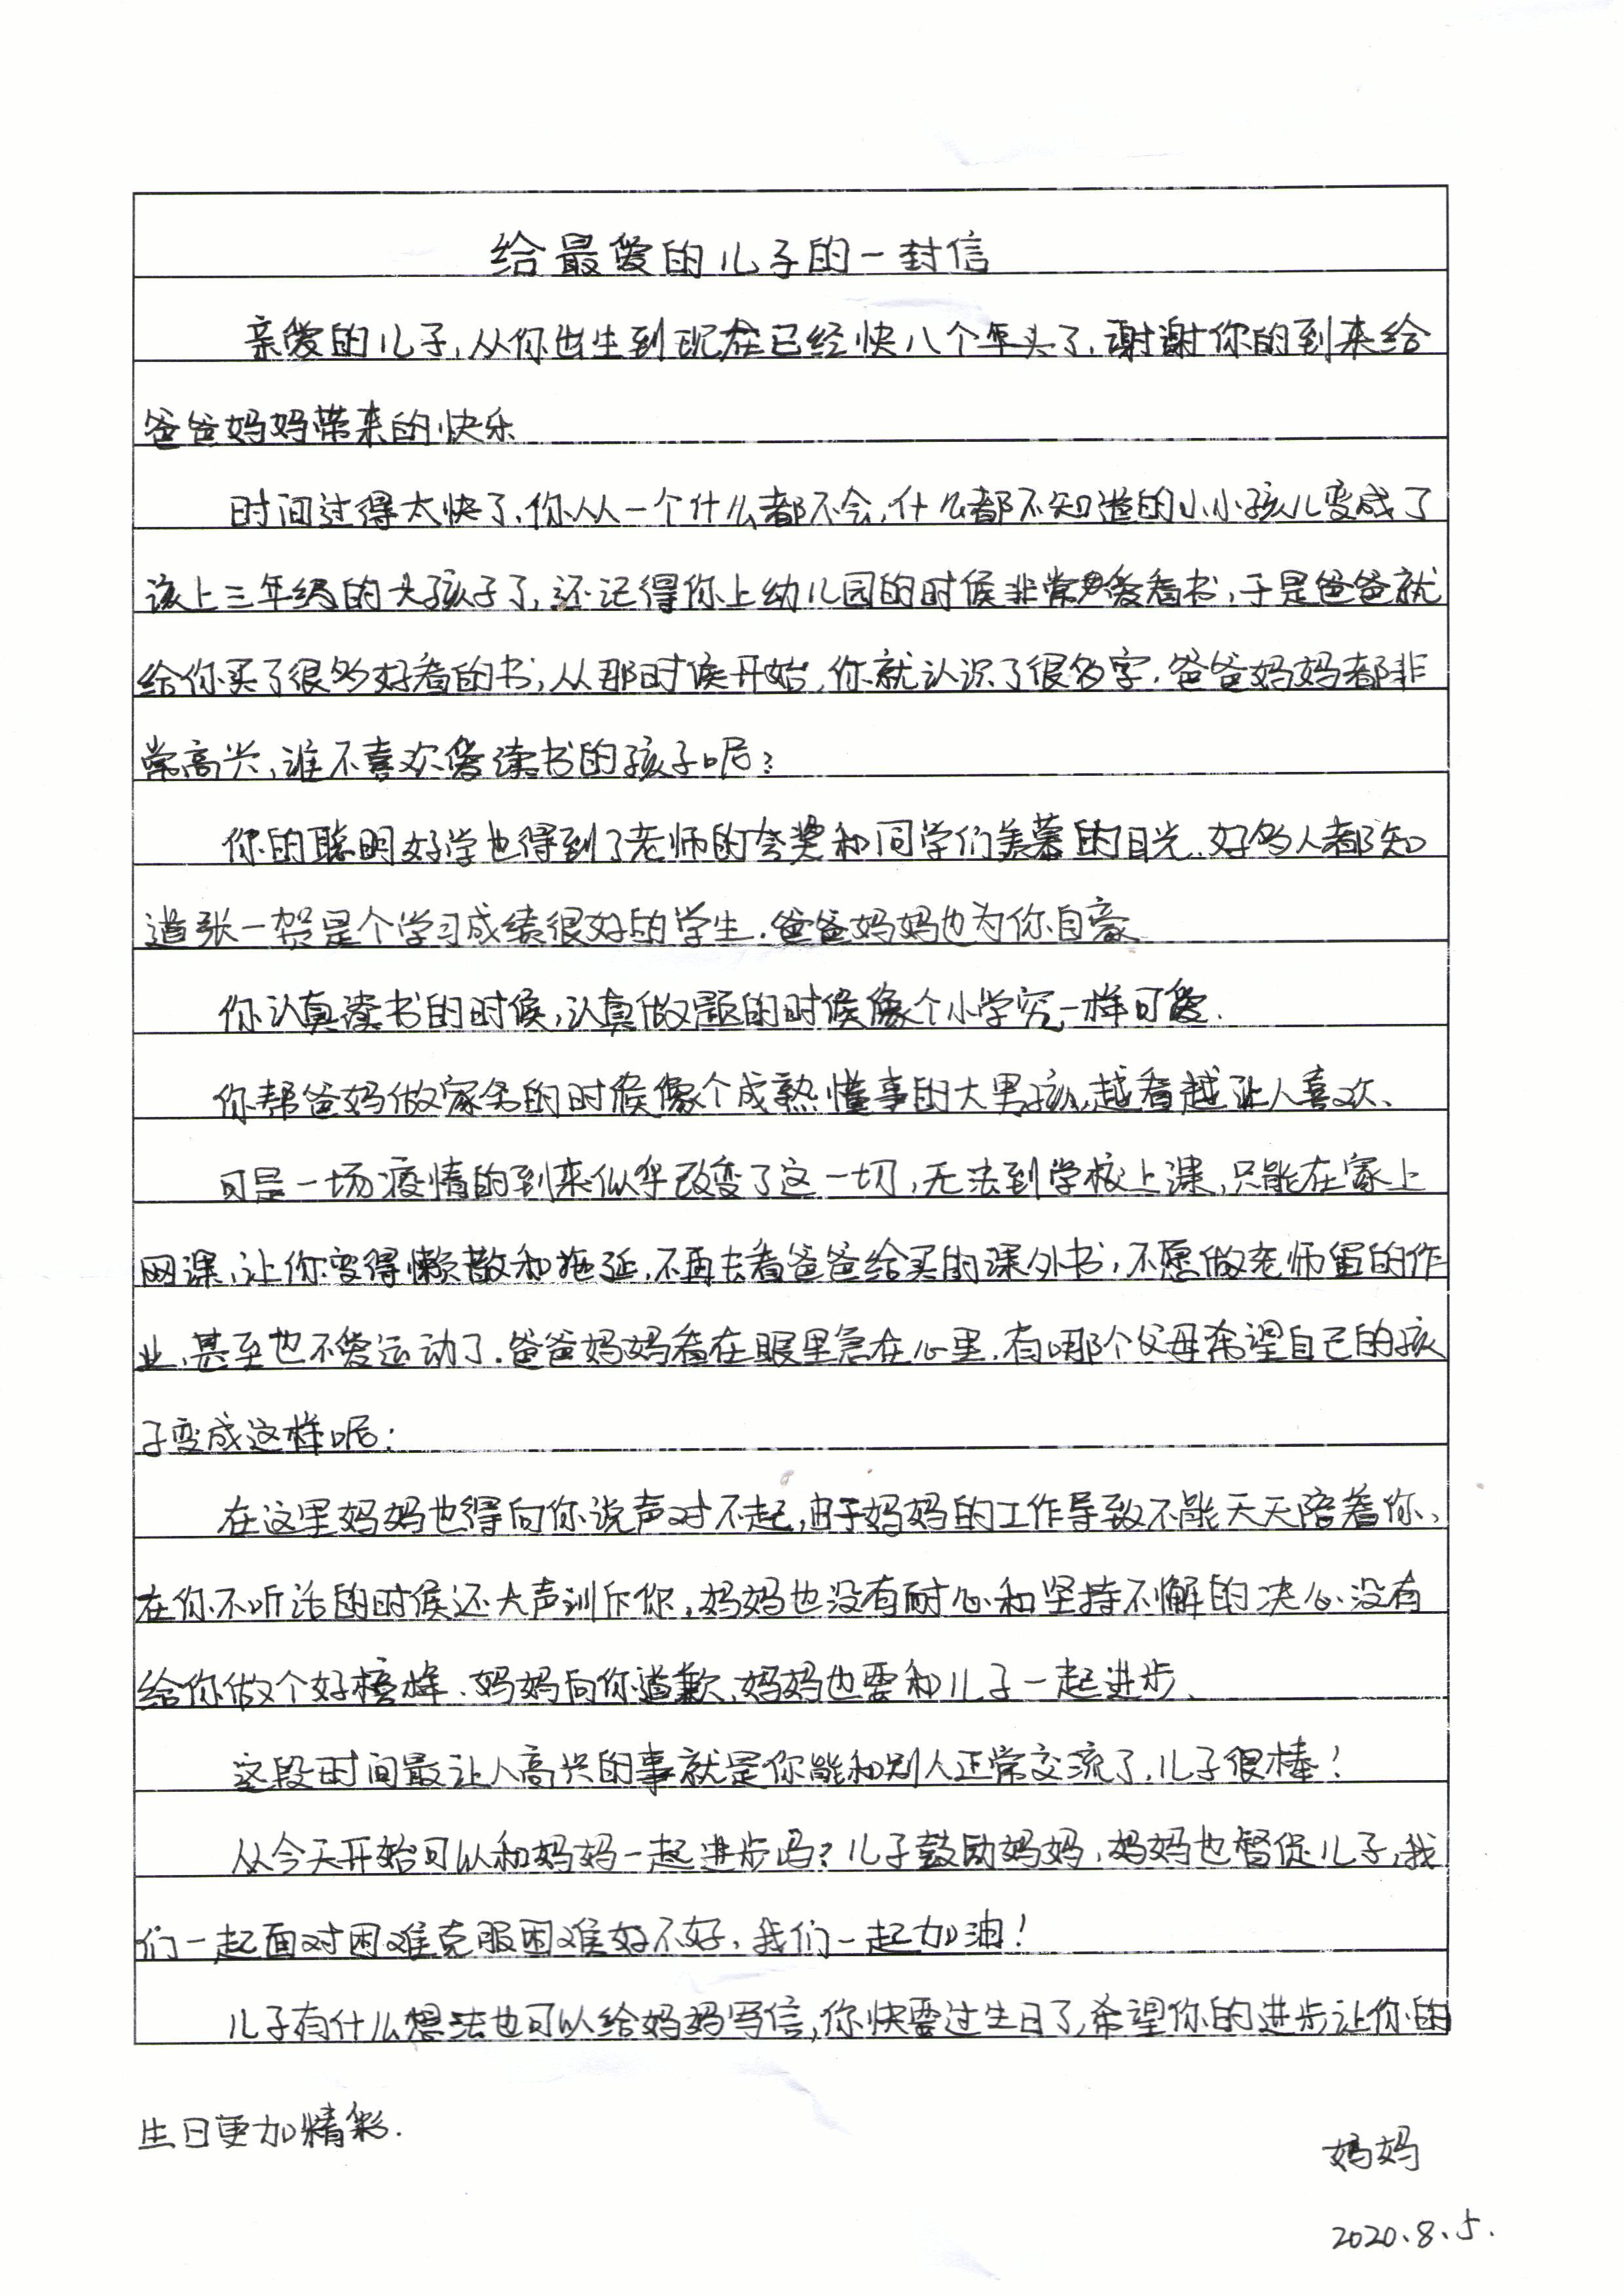 给最爱的儿子的一封信
亲爱的儿子,从你出生到现在已经快八个年头了.谢谢你的到来给
爸爸妈妈带来的快乐
时间过得太快了.你从一个什么都不会,什么都不知道的小小孩儿变成了
该上三年级的大孩子了,还记得你上幼儿园的时候非常爱看书,于是爸爸就
给你买了很多好看的书,从那时候开始,你就认识了很多字.爸爸妈妈都非
常高兴,谁不喜欢爱读书的孩子呢?
你的聪明好学也得到了老师的夸奖和同学们羡慕的目光.好多人都知
道张一贺是个学习成绩很好的学生.爸爸妈妈也为你自豪.
你认真读书的时候,认真做题的时候像个小学究一样可爱.
你帮爸妈做家务的时候像个成熟懂事的大男孩,越看越让人喜欢.
可是一场疫情的到来似乎改变了这一切,无法到学校上课,只能在家上
网课,让你变得懒散和拖延,不再去看爸爸给买的课外书,不愿做老师留的作
业,甚至也不爱运动了.爸爸妈妈看在眼里急在心里.有哪个父母希望自己的孩
子变成这样呢?
在这里妈妈也得向你说声对不起,由于妈妈的工作导致不能天天陪着你,
在你不听话的时候还大声训斥你,妈妈也没有耐心和坚持不懈的决心没有
给你做个好榜样.妈妈向你道歉,妈妈也要和儿子一起进步.
这段时间最让人高兴的事就是你能和别人正常交流了.儿子很棒!
从今天开始可以和妈妈一起进步吗?儿子鼓励妈妈,妈妈也督促儿子,我
们一起面对困难克服困难好不好,我们一起加油!
儿子有什么想法也可以给妈妈写信,你快要过生日了,希望你的进步让你的
生日更加精彩.
妈妈
2020.8.5.